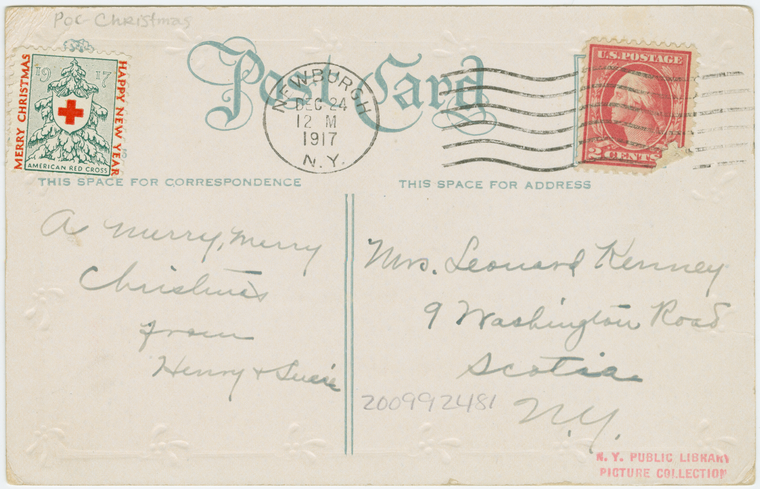 Poc-Christmas
Post Card
MERRY CHRISTMAS
1917
HAPPY NEW YEAR
AMERICAN RED CROSS
NEWBURGH
DEC 24
12 M
1917
N.Y.
U.S. POSTAGE
2 CENTS 2
THIS SPACE FOR CORRESPONDENCE
THIS SPACE FOR ADDRESS
A Merry, Merry
Christmas
from
Henry &
Mrs. Leonard Kenney
9 Washington Road
Scotia
N.Y.
200992481
N. Y. PUBLIC LIBRARY
PICTURE COLLECTION